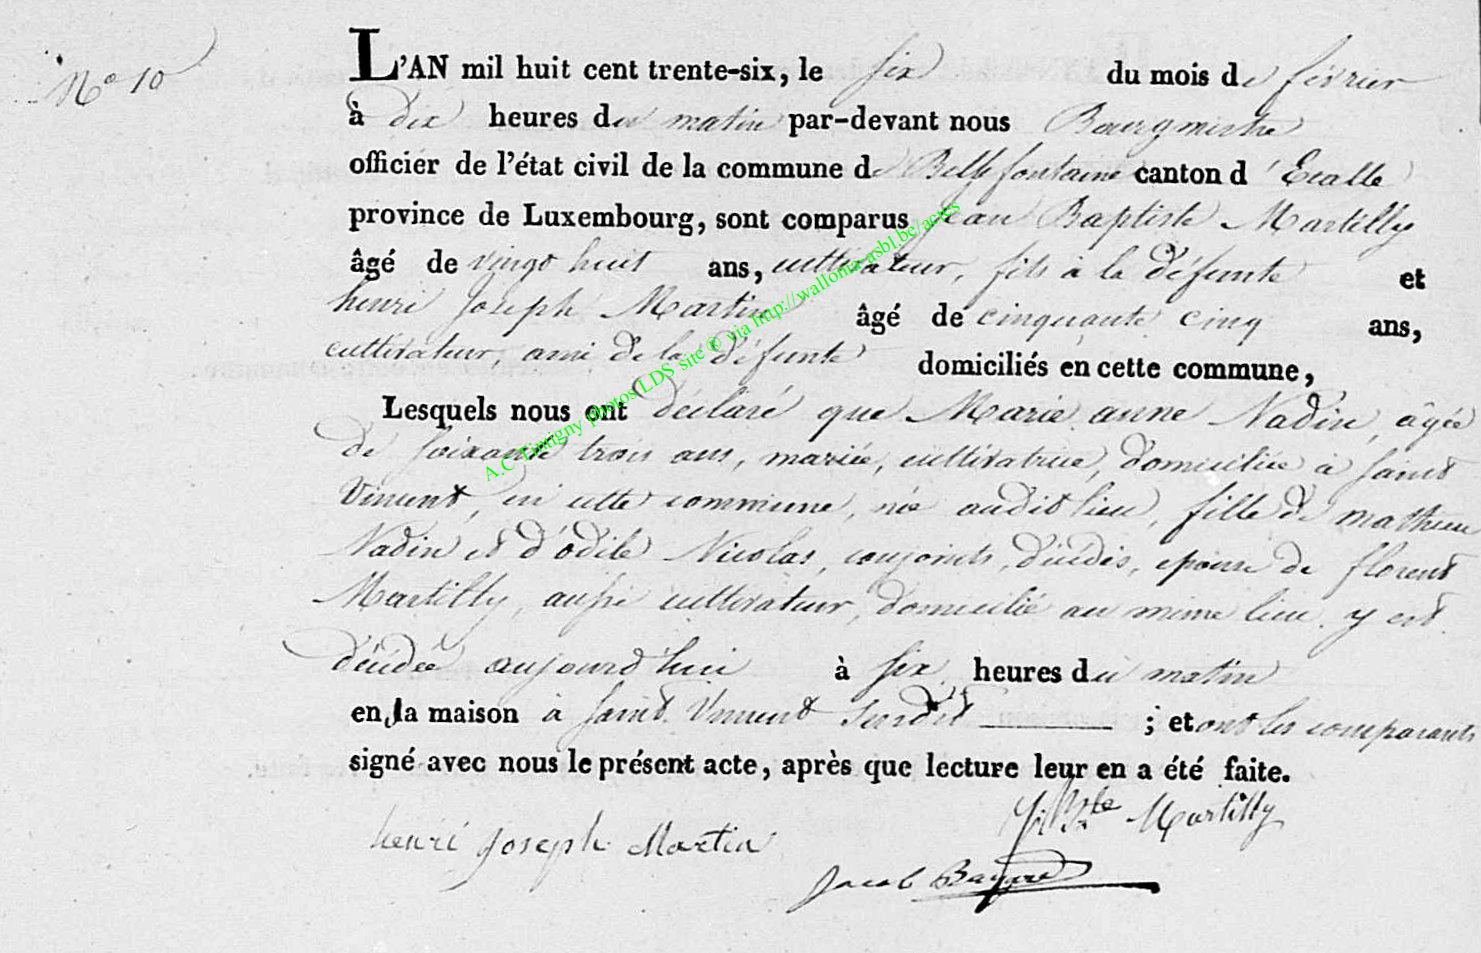 N° 10
L'AN mil huit cent trente-six, le six du mois de février
à dix heures du matin par-devant nous Bourgmestre
officier de l'état civil de la commune de Bellefontaine canton d'Etalle
province de Luxembourg, sont comparus Jean Baptiste Martilly
âgé de vingt huit ans, cultivateur, fils à la défunte et
henri Joseph Martin âgé de cinquante cinq ans,
cultivateur, ami de la défunte domiciliés en cette commune,
Lesquels nous ont déclaré que Marie anne Nadin, âgée
de soixante trois ans, mariée, cultivatrice, domiciliée à saint
Vincent, en cette commune, née audit lieu, fille de mathieu
Nadin et d'odile Nicolas, conjoints, décédés, épouse de florent
Martilly, aussi cultivateur, domicilié au même lieu, y est
décédée aujourd'hui à six heures du matin
en la maison à saint Vincent susdit ; et ont les comparants
signé avec nous le présent acte, après que lecture leur en a été faite.
henri Joseph Martin
J. Bte Martilly
Jacob
A.C Tintigny photos LDS site © via http://wallonia-asbl.be/actes